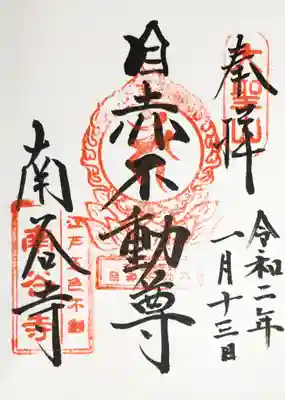 奉拝
令和二年
一月十三日
目赤不動尊
江戸五色不動
南谷寺
南谷寺